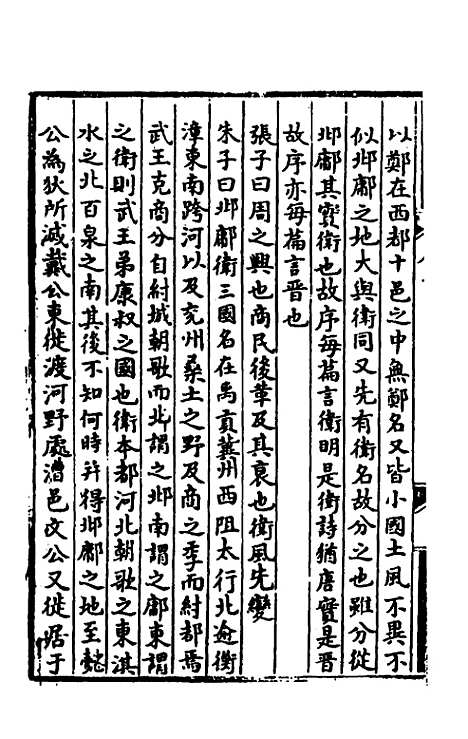 以鄭在西都十邑之中無鄭名又皆小國土風不異不
似邶鄘之地大與衛同又先有衛名故分之也雖分從
邶鄘其實衛也故序每篇言衛明是衛詩猶唐實是晉
故序亦每篇言晉也
張子曰周之興也商民後革及其衰也衛風先變
朱子曰邶鄘衛三國名在禹貢冀州西阻太行北逾衡
漳東南跨河以及兖州桑土之野及商之季而紂都焉
武王克商分自紂城朝歌而北謂之邶南謂之鄘東謂
之衛則武王弟康叔之國也衛本都河北朝歌之東淇
水之北百泉之南其後不知何時并得邶鄘之地至懿
公為狄所滅戴公東徙渡河野處漕邑文公又徙居于